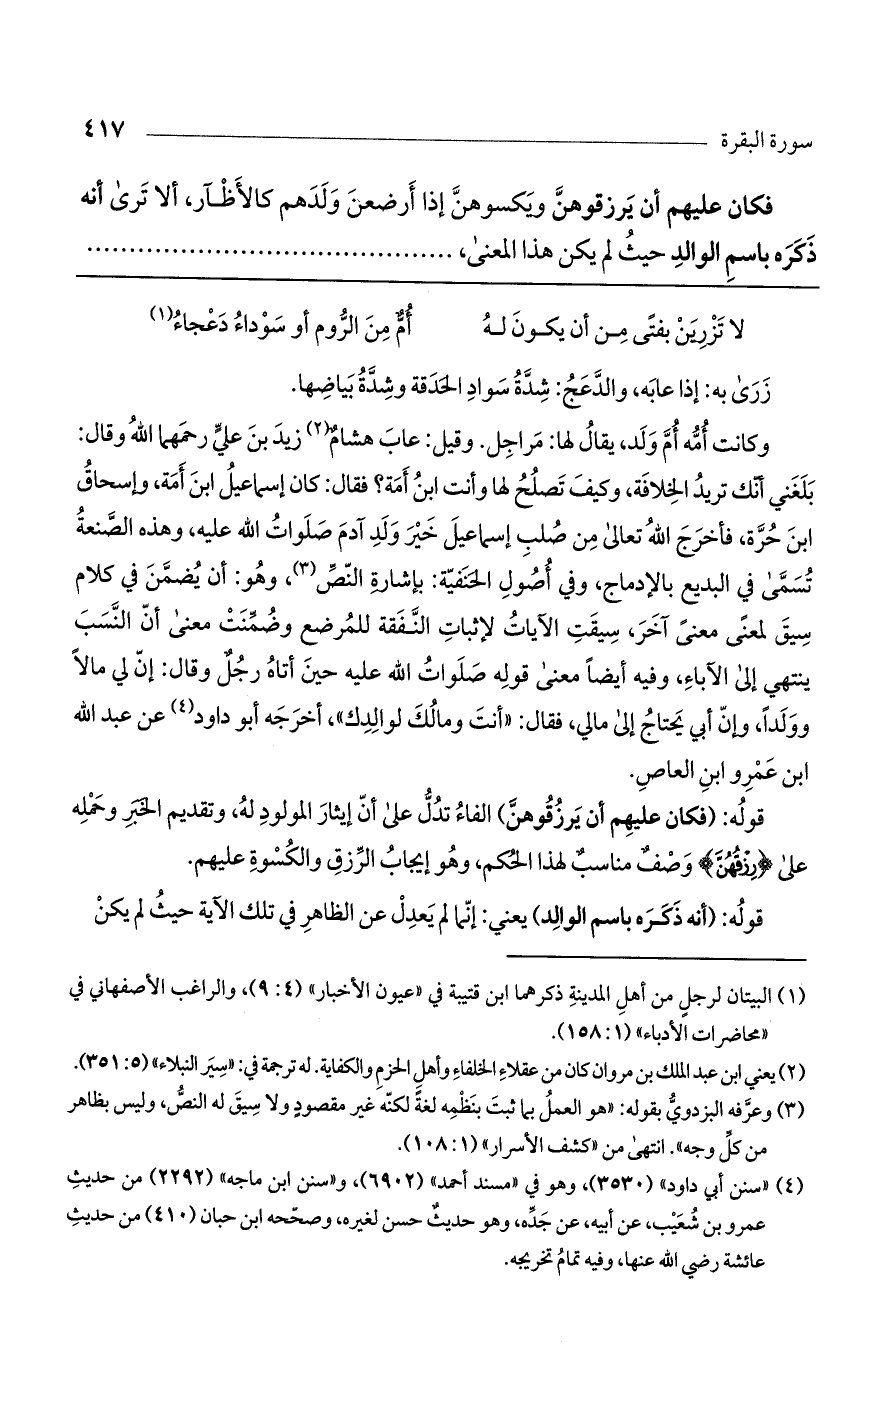 سورة البقرة ٤١٧
فكان عليهم أن يَرزقوهنَّ ويَكسوهنَّ إذا أَرضعنَ وَلَدَهم كالأَظْـآر، ألا تَرىٰ أنه
ذَكَرَه باسمِ الوالدِ حيثُ لم يكن هذا المعنىٰ، ..........................................
لا تَزْرِيَنْ بفتًى مِـن أن يكـونَ لـهُ أُمٌّ مِنَ الرُّوم أو سَوْداءُ دَعْجاءُ(١)
زَرَىٰ به: إذا عابَه، والدَّعَجُ: شِدَّةُ سَوادِ الحَدَقة وشِدَّةُ بَياضِها.
وكانت أُمُّه أُمَّ وَلَد، يقالُ لها: مَراجِل. وقيل: عابَ هشامٌ(٢) زيدَ بنَ عليٍّ رحمَهما اللهُ وقال:
بَلَغَني أنّك تريدُ الخِلافَة، وكيفَ تَصلُحُ لها وأنت ابنُ أَمَة؟ فقال: كان إسماعيلُ ابنَ أَمَة، وإسحاقُ
ابنَ حُرَّة، فأخرَجَ اللهُ تعالىٰ مِن صُلبِ إسماعيلَ خَيْرَ وَلَدِ آدمَ صَلَواتُ الله عليه، وهذه الصَّنعةُ
تُسَمَّىٰ في البديع بالإدماج، وفي أُصُولِ الحَنَفيّة: بإشارةِ النّصِّ(٣)، وهُو: أن يُضمَّنَ في كلام
سِيقَ لمعنًى معنىً آخَرَ، سِيقَتِ الآياتُ لإثباتِ النَّـفَقة للمُرضع وضُمِّنَتْ معنىٰ أنّ النَّسَبَ
ينتهي إلىٰ الآباءِ، وفيه أيضاً معنىٰ قولِه صَلَواتُ الله عليه حينَ أتاهُ رجُلٌ وقال: إنّ لي مالاً
وولَداً، وإنّ أبي يَحتاجُ إلىٰ مالي، فقال: «أنتَ ومالُكَ لوالِدِك»، أخرَجَه أبو داود(٤) عن عبد الله
ابن عَمْرِو ابنِ العاصِ.
قولُه: (فكان عليهِم أن يَرزُقُوهنَّ) الفاءُ تدُلُّ علىٰ أنّ إيثارَ المولودِ لهُ، وتقديم الخَبَرِ وحَمْلِه
علىٰ ﴿رِزْقُهُنَّ﴾ وَصْفٌ مناسبٌ لهذا الحُكم، وهُو إيجابُ الرِّزقِ والكُسْوةِ عليهم.
قولُه: (أنه ذَكَـرَه باسم الوالِد) يعني: إنّما لم يَعدِلْ عن الظاهرِ في تلك الآية حيثُ لم يكنْ
(١) البيتان لرجلٍ من أهلِ المدينةِ ذكرهما ابن قتيبة في «عيون الأخبار» (٤: ٩)، والراغب الأصفهاني في
«محاضرات الأدباء» (١: ١٥٨).
(٢) يعني ابن عبد الملك بن مروان كان من عقلاءِ الخلفاءِ وأهلِ الحزمِ والكفاية. له ترجمة في: «سِيَر النبلاء» (٥: ٣٥١).
(٣) وعرَّفه البزدويُّ بقوله: «هو العملُ بما ثبتَ بنَظْمِه لغةً لكنّه غير مقصودٍ ولا سِيقَ له النصُّ، وليس بظاهر
من كلِّ وجه». انتهىٰ من «كشف الأسرار» (١: ١٠٨).
(٤) «سنن أبي داود» (٣٥٣٠)، وهو في «مسند أحمد» (٦٩٠٢)، و«سنن ابن ماجه» (٢٢٩٢) من حديثِ
عمرو بن شُعَيْب، عن أبيه، عن جَدِّه، وهو حديثٌ حسن لغيره، وصحّحه ابن حبان (٤١٠) من حديثِ
عائشة رضي الله عنها، وفيه تمامُ تخريجه.